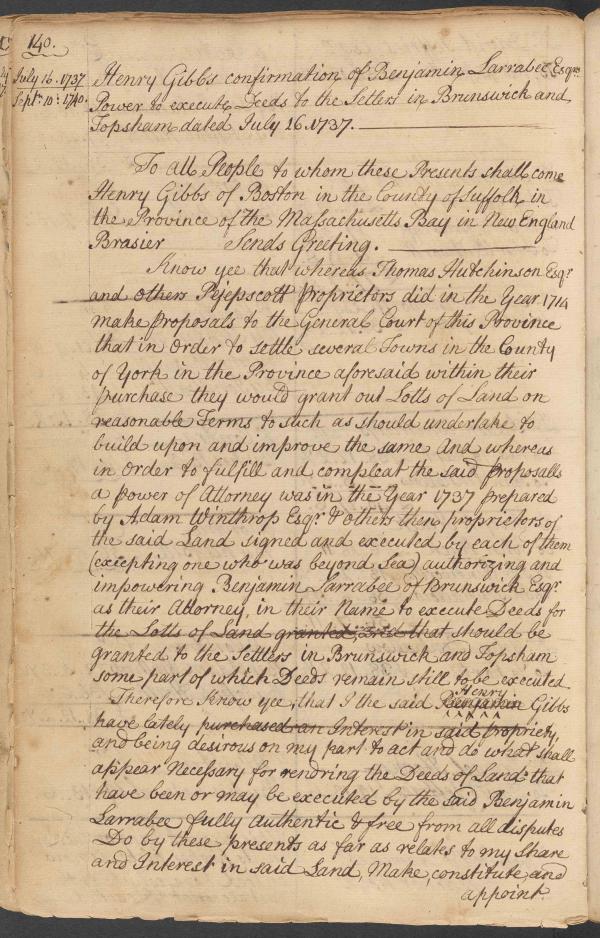 140.
July 16. 1737
Sept. 10: 1740.
Henry Gibbs confirmation of Benjamin Larrabee Esqrs
Power to execute Deeds to the Setlers in Brunswick and
Topsham dated July 16. 1737.
To all People to whom these Presents shall come
Henry Gibbs of Boston in the County of Suffolk in
the Province of the Massachusetts Bay in New England
Brasier Sends Greeting.
Know yee that whereas Thomas Hutchinson Esqr.
and others Pejepscott Proprietors did in the Year 1714
make proposals to the General Court of this Province
that in Order to settle several Towns in the County
of York in the Province aforesaid within their
purchase they would grant out Lotts of Land on
reasonable Terms to such as should undertake to
build upon and improve the same And whereas
in Order to fulfill and compleat the said proposalls
a power of Attorney was in the Year 1737 prepared
by Adam Winthrop Esqr. & others then proprietors of
the said Land signed and executed by each of them
(excepting one who was beyond Sea) authorizing and
impowering Benjamin Larrabee of Brunswick Esqr.
as their Attorney, in their Name to execute Deeds for
the Lotts of Land granted that should be
granted to the Setlers in Brunswick and Topsham
some part of which Deeds remain still to be executed
Therefore Know yee, that I the said Benjamin Henry Gibbs
have lately purchased an Interest in said propriety,
and being desirous on my part to act and do what shall
appear Necessary for rendring the Deeds of Lands that
have been or may be executed by the said Benjamin
Larrabee fully authentic & free from all disputes
Do by these presents as far as relates to my Share
and Interest in said Land, Make, constitute, and
appoint